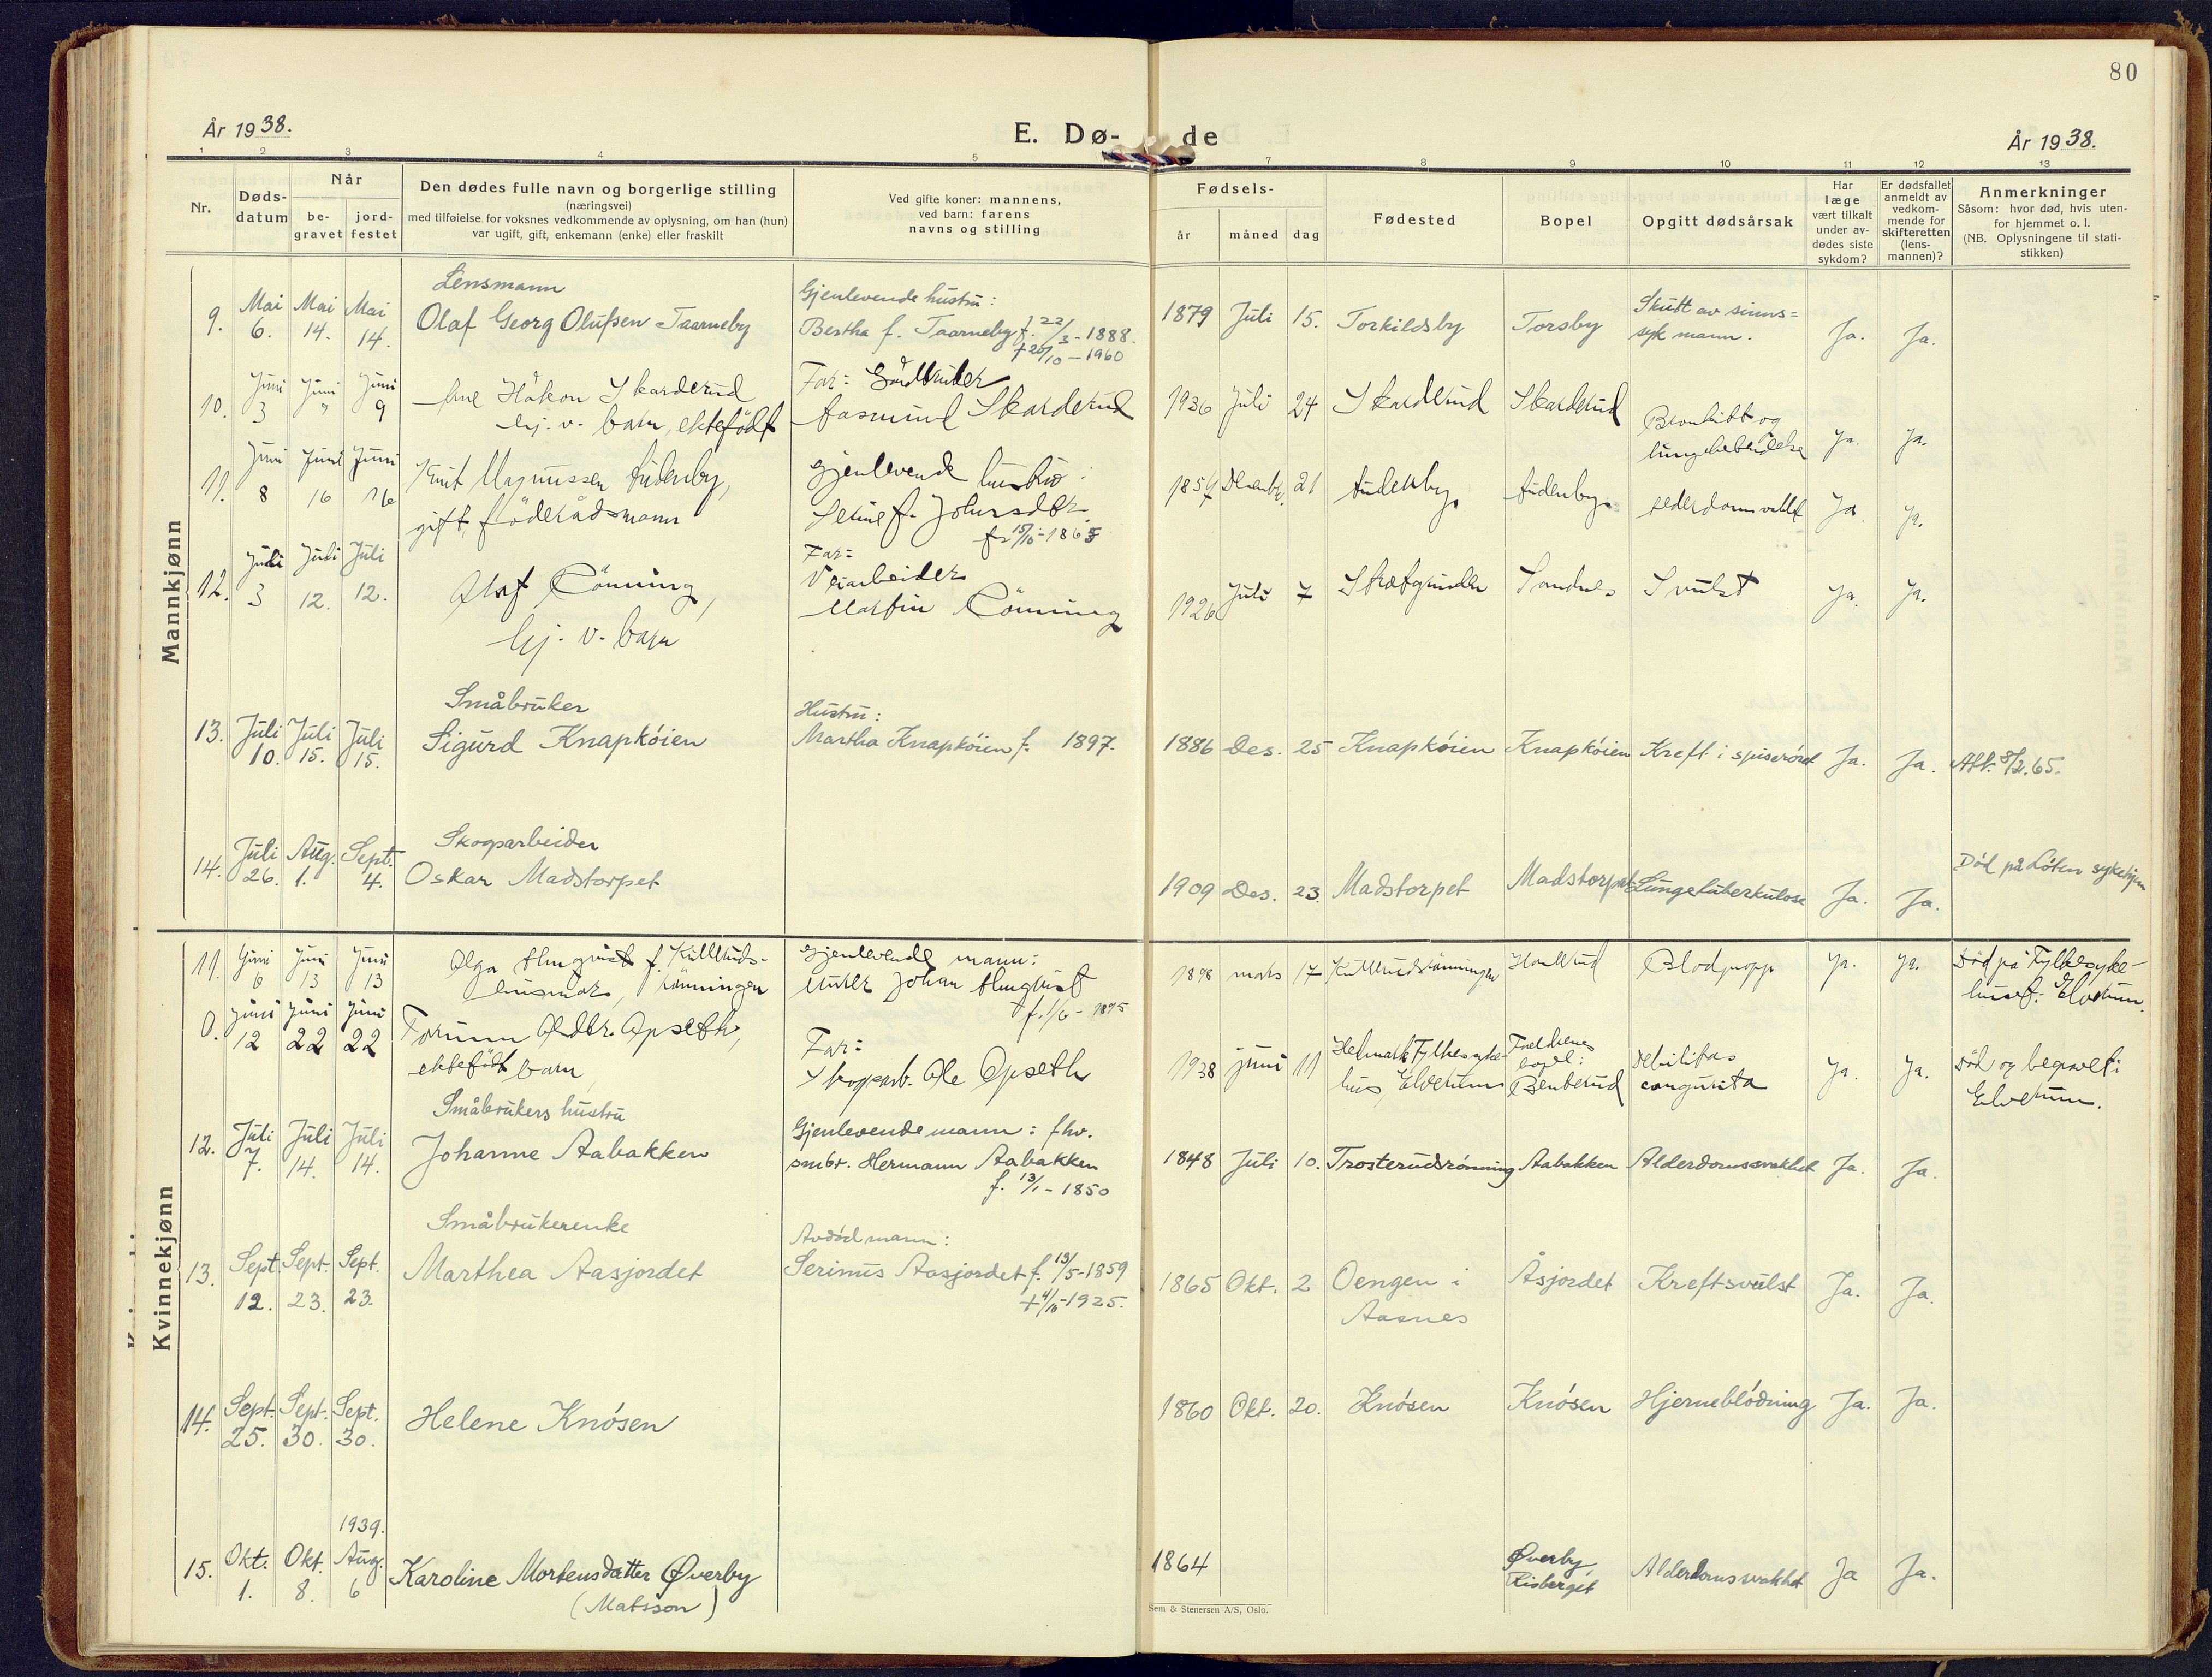 80
År 1938.
E. Dø-
de
År 1938.
1 2 3 4 5 7 8 9 10 11 12 13
Nr.
Døds-
datum
Når
be-
gravet
jord-
festet
Den dødes fulle navn og borgerlige stilling
(næringsvei)
med tilføielse for voksnes vedkommende av oplysning, om han (hun)
var ugift, gift, enkemann (enke) eller fraskilt
Ved gifte koner: mannens,
ved barn: farens
navns og stilling
Fødsels-
år
måned
dag
Fødested
Bopel
Opgitt dødsårsak
Har
læge
vært tilkalt
under av-
dødes siste
sykdom?
Er dødsfallet
anmeldt av
vedkom-
mende for
skifteretten
(lens-
mannen)?
Anmerkninger
Såsom: hvor død, hvis uten-
for hjemmet o. l.
(NB. Oplysningene til stati-
stikken)
Mannkjønn
9. Mai 6. Mai 14. Mai 14.
Lensmann
Olaf Georg Olufsen Taarneby
Gjenlevende hustru:
Bertha f. Taarneby f. 22/3-1888.
+ 20/10-1960
1879 Juli 15. Torkildsby Torsby
Skutt av sinns=
syk mann.
Ja. Ja.
10. Juni 3 Juni 9 Juni 9
Håkon Skarderud
hj. v. barn, ektefødt
Far: Gårdbruker
Aasmund Skarderud
1936 Juli 24 Skarderud Skarderud
Bronkitt og
lungebetendelse
Ja. Ja.
11. Juni 8 Juni 16 Juni 16
Knut Magnussen
gift, föderådsmann
gjenlevende hustru:
Serine f. Johnsdtr.
f. 15/10-1865
1854 Desembr. 21
Ja Ja.
12. Juli 3 Juli 12. Juli 12.
Olaf Rönning,
hj. v. barn
Far:
Veiarbeider
Martin Rönning
1926 Juli 7 Sandnes Svulst
Ja. Ja.
13. Juli 10. Juli 15. Juli 15.
Småbruker
Sigurd Knapkøien
Hustru:
Martha Knapkøien f. 1897.
1886 Des. 25 Knapkøien Knapkøien Kreft i spiserøret Ja. Ja. Att. 8/2.65.
14. Juli 26. Aug. 1. Sept. 4.
Skogsarbeider
Oskar Madstorpet
1909 Des. 23. Madstorpet Madstorpet Lungetuberkulose Ja. Ja.
Død på Løten sykehjem
Kvinnekjønn
11. Juni 6 Juni 13 Juni 13
Olga Almqvist f. Kulleruds-
husmor, rönningen
gjenlevende mann:
Murer Johan Almqvist
f. 1/6-1875
1898 mars 17 Kullerudrönningen Blodpropp Ja. Ja.
Död på Fylkessyke-
huset i Elverum.
0. Juni 12 Juni 22 Juni 22
Torunn Opseth,
ektefödt barn
Far:
Skogsarb. Ole Opseth
1938 juni 11
Hedmark Fylkessyke-
hus, Elverum
Foreldrenes
bopel:
Benterud
Debilitas
congenita
Ja. Ja.
Död og begravet i
Elverum.
12. Juli 7. Juli 14. Juli 14.
Småbrukers hustru
Johanne Aabakken
Gjenlevende mann: fhv.
smbr. Hermann Aabakken
f. 13/1-1850
1848 Juli 10. Trosterudrønning Aabakken Alderdomssvakhet Ja. Ja.
13. Sept. 12. Sept. 23. Sept. 23.
Småbrukerenke
Marthea Aasjordet
Avdød mann:
Serinus Aasjordet f. 13/5-1859
+ 4/10-1925.
1865 Okt. 2
Oengen i
Aasnes
Åsjordet Kreftsvulst Ja. Ja.
14. Sept. 25. Sept. 30. Sept. 30.
Helene Knøsen
1860 Okt. 20. Knøsen Knøsen Hjerneblødning Ja. Ja.
1939.
15. Okt. 1. Okt. 8. Aug. 6
Karoline Mortensdatter Øverby
(Matsson)
1864
Øverby,
Risberget
Alderdomssvakhet Ja Ja.
Sem & Stenersen A/S, Oslo.